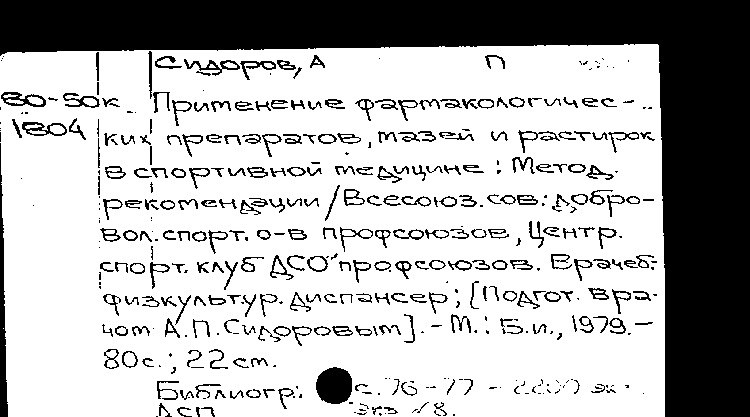 Сидоров, А П
80-50к Применение фармакологичес-
1804 ких препаратов, мазей и растирок
в спортивной медицине: Метод.
рекомендации/Всесоюз. сов. добро-
вол. спорт. о-в профсоюзов, Центр.
спорт. клуб ДСО профсоюзов. Врачеб.
физкультур. диспансер; [Подгот. вра-
чом А.П.Сидоровым]. - М.: Б.и., 1979. -
80 с.; 22 см.
Библиогр: с. 76-77 - экз.
ДСП экз